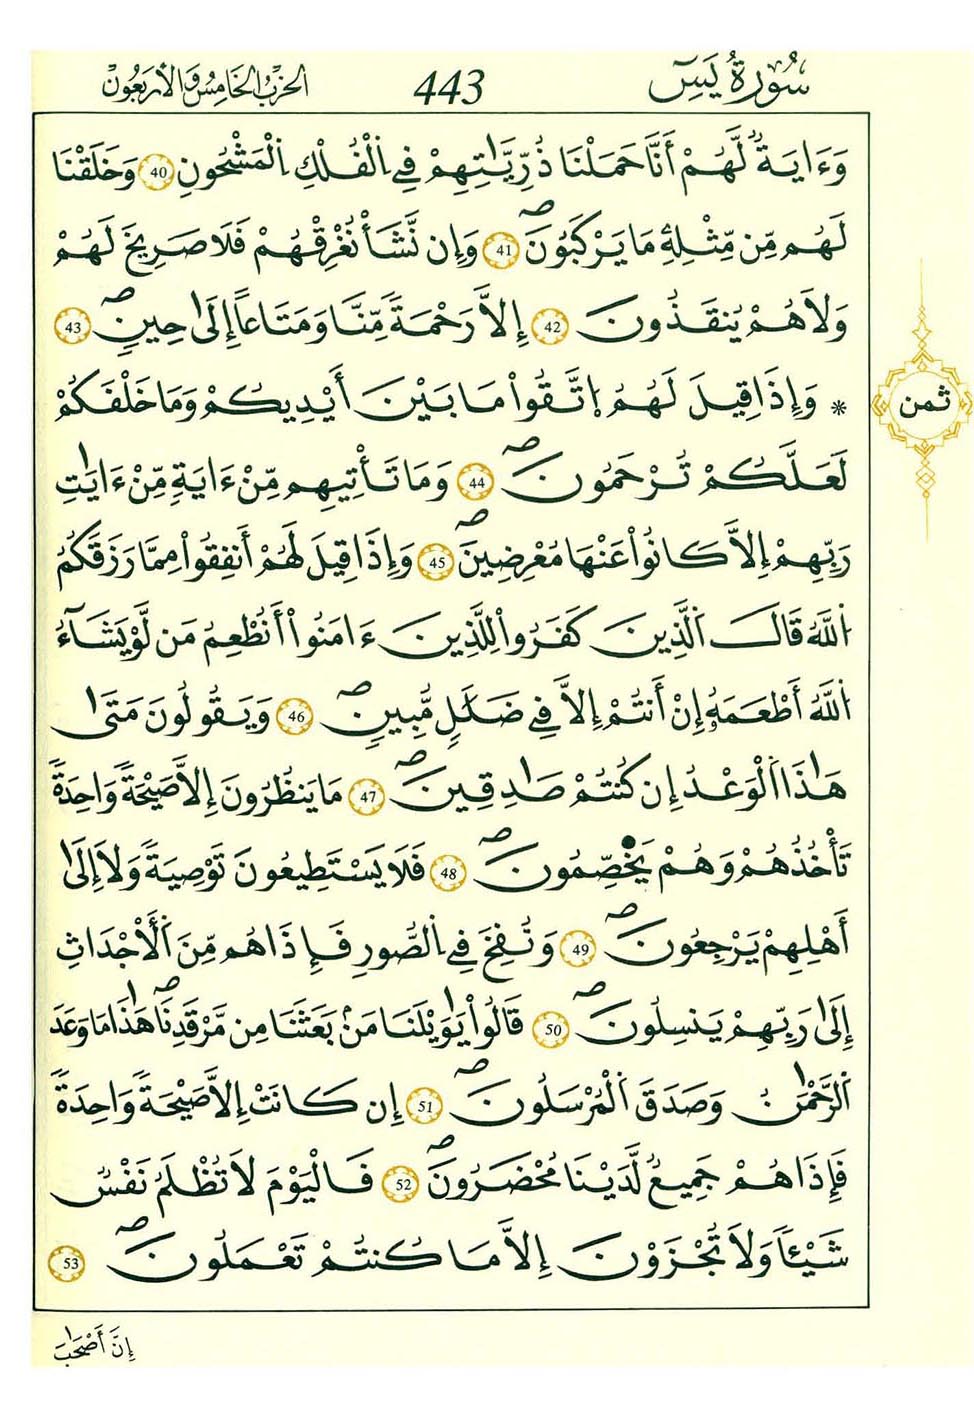 سُورَةُ يَسِٓ
443
الحِزْبُ الخَامِسُ وَالأَرْبَعُونَ
وَءَايَةٞ لَّهُمْ أَنَّا حَمَلْنَا ذُرِّيَّٰتِهِمْ فِے اِ۬لْفُلْكِ اِ۬لْمَشْحُونِ 40 وَخَلَقْنَا
لَهُم مِّن مِّثْلِهِۦ مَا يَرْكَبُونَۖ 41 وَإِن نَّشَأْ نُغْرِقْهُمْ فَلَا صَرِيخَ لَهُمْ
وَلَا هُمْ يُنقَذُونَ 42 إِلَّا رَحْمَةٗ مِّنَّا وَمَتَٰعاً إِلَىٰ حِينٖۖ 43
* وَإِذَا قِيلَ لَهُمُ اُ۪تَّقُواْ مَا بَيْنَ أَيْدِيكُمْ وَمَا خَلْفَكُمْ
لَعَلَّكُمْ تُرْحَمُونَۖ 44 وَمَا تَأْتِيهِم مِّنْ ءَايَةٖ مِّنْ ءَايَٰتِ
رَبِّهِمْ إِلَّا كَانُواْ عَنْهَا مُعْرِضِينَۖ 45 وَإِذَا قِيلَ لَهُمْ أَنفِقُواْ مِمَّا رَزَقَكُمُ
اُ۬للَّهُ قَالَ اَ۬لَّذِينَ كَفَرُواْ لِلَّذِينَ ءَامَنُواْ أَنُطْعِمُ مَن لَّوْ يَشَآءُ
اُ۬للَّهُ أَطْعَمَهُۥٓ إِنْ أَنتُمْ إِلَّا فِے ضَلَٰلٖ مُّبِينٖۖ 46 وَيَقُولُونَ مَتَىٰ
هَٰذَا اَ۬لْوَعْدُ إِن كُنتُمْ صَٰدِقِينَۖ 47 مَا يَنظُرُونَ إِلَّا صَيْحَةٗ وَٰحِدَةٗ
تَأْخُذُهُمْ وَهُمْ يَخَصِّمُونَۖ 48 فَلَا يَسْتَطِيعُونَ تَوْصِيَةٗ وَلَا إِلَىٰ
أَهْلِهِمْ يَرْجِعُونَۖ 49 وَنُفِخَ فِے اِ۬لصُّورِ فَإِذَا هُم مِّنَ اَ۬لْأَجْدَاثِ
إِلَىٰ رَبِّهِمْ يَنسِلُونَۖ 50 قَالُواْ يَٰوَيْلَنَا مَنۢ بَعَثَنَا مِن مَّرْقَدِنَاۖ هَٰذَا مَا وَعَدَ
اَ۬لرَّحْمَٰنُ وَصَدَقَ اَ۬لْمُرْسَلُونَۖ 51 إِن كَانَتْ إِلَّا صَيْحَةٗ وَٰحِدَةٗ
فَإِذَا هُمْ جَمِيعٞ لَّدَيْنَا مُحْضَرُونَۖ 52 فَالْيَوْمَ لَا تُظْلَمُ نَفْسٞ
شَيْـٔاٗ وَلَا تُجْزَوْنَ إِلَّا مَا كُنتُمْ تَعْمَلُونَۖ 53
ثمن
إِنَّ أَصْحَٰبَ